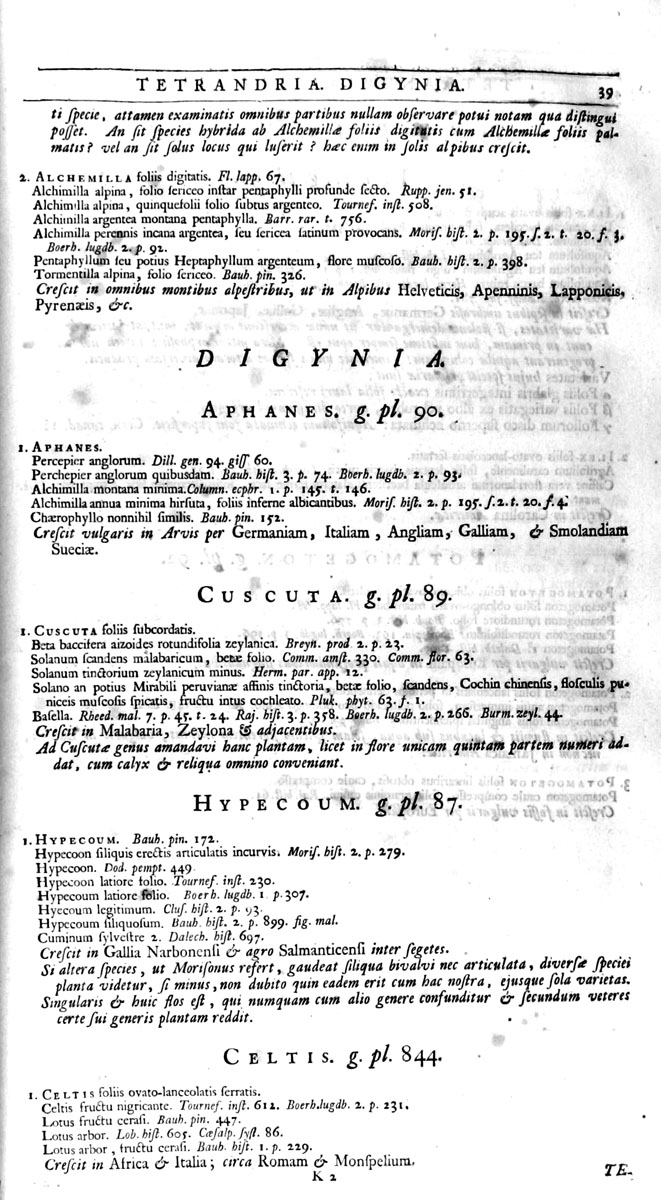 TETRANDRIA. DIGYNIA. 39
ti ſpecie, attamen examinatis omnibus partibus nullam obſervare potui notam qua diſtingui
poſſet. An ſit ſpecies hybrida ab Alchemillæ foliis digitatis cum Alchemillæ foliis pal-
matis? vel an ſit ſolus locus qui luſerit? hæc enim in ſolis alpibus creſcit.
2. ALCHEMILLA foliis digitatis. Fl. lapp. 67.
Alchimilla alpina, folio ſericeo inſtar pentaphylli profunde ſecto. Rupp. jen. 51.
Alchimilla alpina, quinquefolii folio ſubtus argenteo. Tournef. inſt. 508.
Alchimilla argentea montana pentaphylla. Barr. rar. t. 756.
Alchimilla perennis incana argentea, ſeu ſericea ſatinum provocans. Moriſ. hiſt. 2. p. 195. ſ. 2. t. 20. f. 3.
Boerh. lugdb. 2. p. 92.
Pentaphyllum ſeu potius Heptaphyllum argenteum, flore muſcoſo. Bauh. hiſt. 2. p. 398.
Tormentilla alpina, folio ſericeo. Bauh. pin. 326.
Creſcit in omnibus montibus alpeſtribus, ut in Alpibus Helveticis, Apenninis, Lapponicis,
Pyrenæis, &c.
DIGYNIA.
APHANES. g. pl. 90.
1. APHANES.
Percepier anglorum. Dill. gen. 94. giſſ 60.
Perchepier anglorum quibusdam. Bauh. hiſt. 3. p. 74. Boerh. lugdb. 2. p. 93.
Alchimilla montana minima. Column. ecphr. 1. p. 145. t. 146.
Alchimilla annua minima hirſuta, foliis inferne albicantibus. Moriſ. hiſt. 2. p. 195. ſ. 2. t. 20. f. 4.
Chærophyllo nonnihil ſimilis. Bauh. pin. 152.
Creſcit vulgaris in Arvis per Germaniam, Italiam, Angliam, Galliam, & Smolandiam
Sueciæ.
CUSCUTA. g. pl. 89.
1. CUSCUTA foliis ſubcordatis.
Beta baccifera aizoides rotundifolia zeylanica. Breyn. prod. 2. p. 23.
Solanum ſcandens malabaricum, betæ folio. Comm. amſt. 330. Comm. flor. 63.
Solanum tinctorium zeylanicum minus. Herm. par. app. 12.
Solano an potius Mirabili peruvianæ affinis tinctoria, betæ folio, ſcandens, Cochin chinenſis, floſculis pu-
niceis muſcoſis ſpicatis, fructu intus cochleato. Pluk. phyt. 63. f. 1.
Baſella. Rheed. mal. 7. p. 45. t. 24. Raj. hiſt. 3. p. 358. Boerh. lugdb. 2. p. 266. Burm. zeyl. 44.
Creſcit in Malabaria, Zeylona & adjacentibus.
Ad Cuſcutæ genus amandavi hanc plantam, licet in flore unicam quintam partem numeri ad-
dat, cum calyx & reliqua omnino conveniant.
HYPECOUM. g. pl. 87.
1. HYPECOUM. Bauh. pin. 172.
Hypecoon ſiliquis erectis articulatis incurvis. Moriſ. hiſt. 2. p. 279.
Hypecoon. Dod. pempt. 449
Hypecoon latiore folio. Tournef. inſt. 230.
Hypecoum latiore folio. Boerh. lugdb. 1 p. 307.
Hyecoum legitimum. Cluſ. hiſt. 2. p. 93.
Hypecoum ſiliquoſum. Bauh. hiſt. 2. p. 899. fig. mal.
Cuminum ſylveſtre 2. Dalech. hiſt. 697.
Creſcit in Gallia Narbonenſi & agro Salmanticenſi inter ſegetes.
Si altera ſpecies, ut Moriſonus refert, gaudeat ſiliqua bivalvi nec articulata, diverſæ ſpeciei
planta videtur, ſi minus, non dubito quin eadem erit cum hac noſtra, ejusque ſola varietas.
Singularis & huic flos eſt, qui numquam cum alio genere confunditur & ſecundum veteres
certe ſui generis plantam reddit.
CELTIS. g. pl. 844.
1. CELTIS foliis ovato-lanceolatis ſerratis.
Celtis fructu nigricante. Tournef. inſt. 612. Boerh. lugdb. 2. p. 231.
Lotus fructu ceraſi. Bauh. pin. 447.
Lotus arbor. Lob. hiſt. 605. Cæſalp. ſyſt. 86.
Lotus arbor, fructu ceraſi. Bauh. hiſt. 1. p. 229.
Creſcit in Africa & Italia; circa Romam & Monſpelium.
K 2
TE-